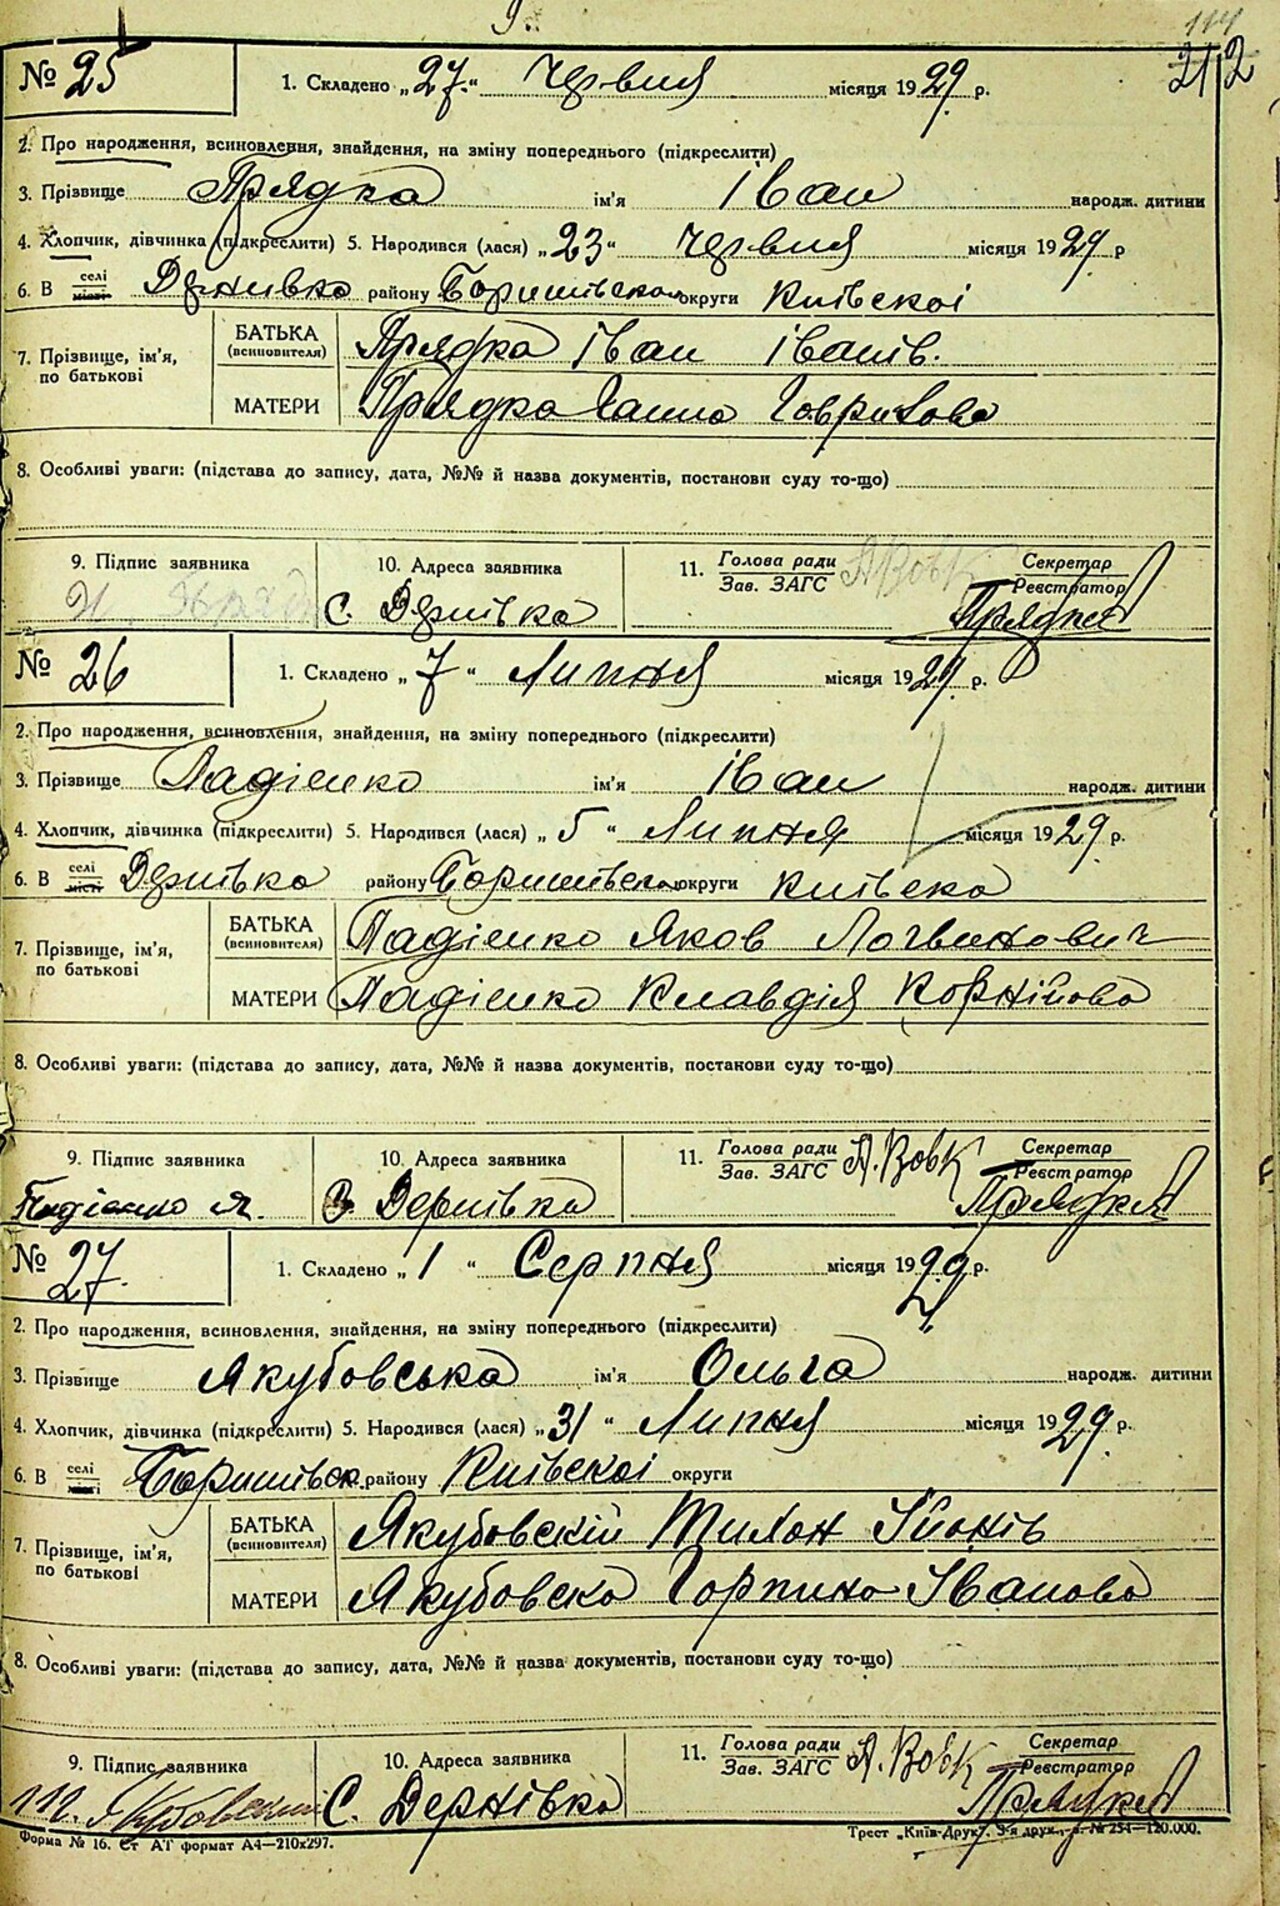 9.
114
212
№ 25
1. Складено „27" Червня місяця 1929 р.
2. Про народження, всиновлення, знайдення, на зміну попереднього (підкреслити)
3. Прізвище Прядка ім'я Іван народж. дитини
4. Хлопчик, дівчинка (підкреслити) 5. Народився (лася) „23" Червня місяця 1929 р
6. В селі місті Дернівка району Баришівськ округи Київскоі
7. Прізвище, ім'я, по батькові БАТЬКА (всиновителя) Прядка Іван Іванів.
МАТЕРИ Прядка Ганна Гаврилова
8. Особливі уваги: (підстава до запису, дата, №№ й назва документів, постанови суду то-що)
9. Підпис заявника 10. Адреса заявника 11. Голова ради Зав. ЗАГС А Вовк Секретар Реєстратор
С. Дернівка Прядка
№ 26
1. Складено „7" Липня місяця 1929 р.
2. Про народження, всиновлення, знайдення, на зміну попереднього (підкреслити)
3. Прізвище Падіенко ім'я Іван народж. дитини
4. Хлопчик, дівчинка (підкреслити) 5. Народився (лася) „5" Липня місяця 1929 р.
6. В селі місті Дернівка району Баришівска округи Київска
7. Прізвище, ім'я, по батькові БАТЬКА (всиновителя) Падіенко Яков Логвинович
МАТЕРИ Падіенко Клавдія Корнійова
8. Особливі уваги: (підстава до запису, дата, №№ й назва документів, постанови суду то-що)
9. Підпис заявника 10. Адреса заявника 11. Голова ради Зав. ЗАГС А. Вовк Секретар Реєстратор
Падіенко Я. С. Дернівка Прядка
№ 27.
1. Складено „1" Серпня місяця 1929 р.
2. Про народження, всиновлення, знайдення, на зміну попереднього (підкреслити)
3. Прізвище Якубовська ім'я Ольга народж. дитини
4. Хлопчик, дівчинка (підкреслити) 5. Народився (лася) „31" Липня місяця 1929 р.
6. В селі місті Баришівск. району Київскоі округи
7. Прізвище, ім'я, по батькові БАТЬКА (всиновителя) Якубовскій Филон Йонів
МАТЕРИ Якубовска Горпина Іванова
8. Особливі уваги: (підстава до запису, дата, №№ й назва документів, постанови суду то-що)
9. Підпис заявника 10. Адреса заявника 11. Голова ради Зав. ЗАГС А. Вовк Секретар Реєстратор
Якубовский С. Дернівка Прядка
Форма № 16. Ст АТ формат А4—210х297.
Трест „Київ-Друк". 3-я друк., з. № 254—120.000.